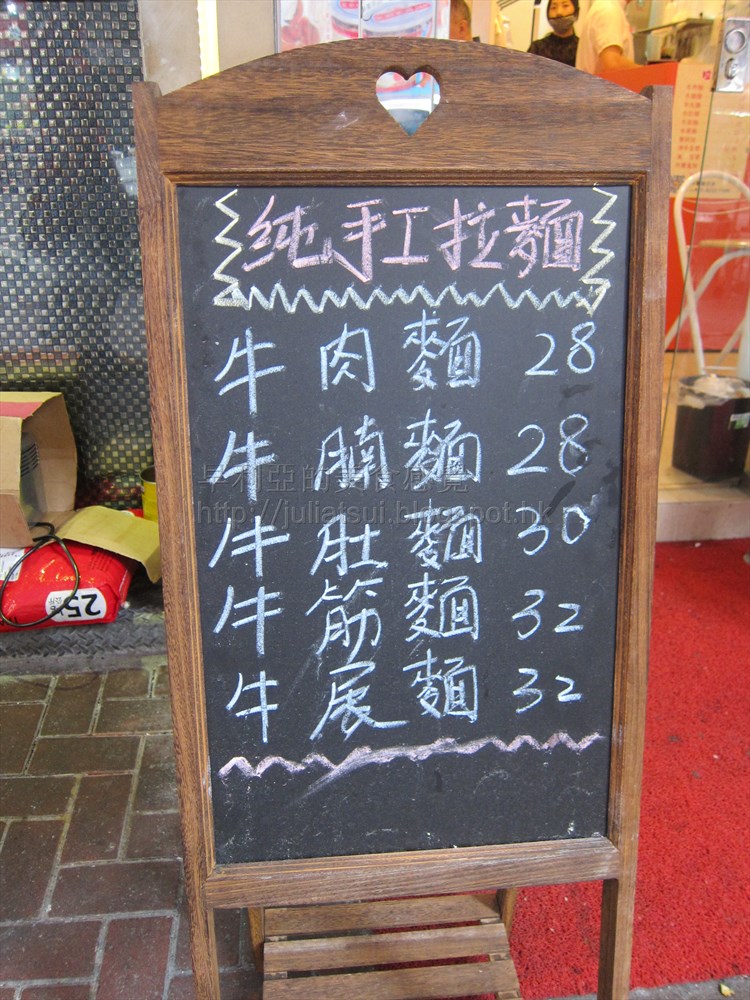 纯手工拉麵
牛肉麵 28
牛腩麵 28
牛肚麵 30
牛筋麵 32
牛展麵 32
http://juliatsui.blogspot.hk
25